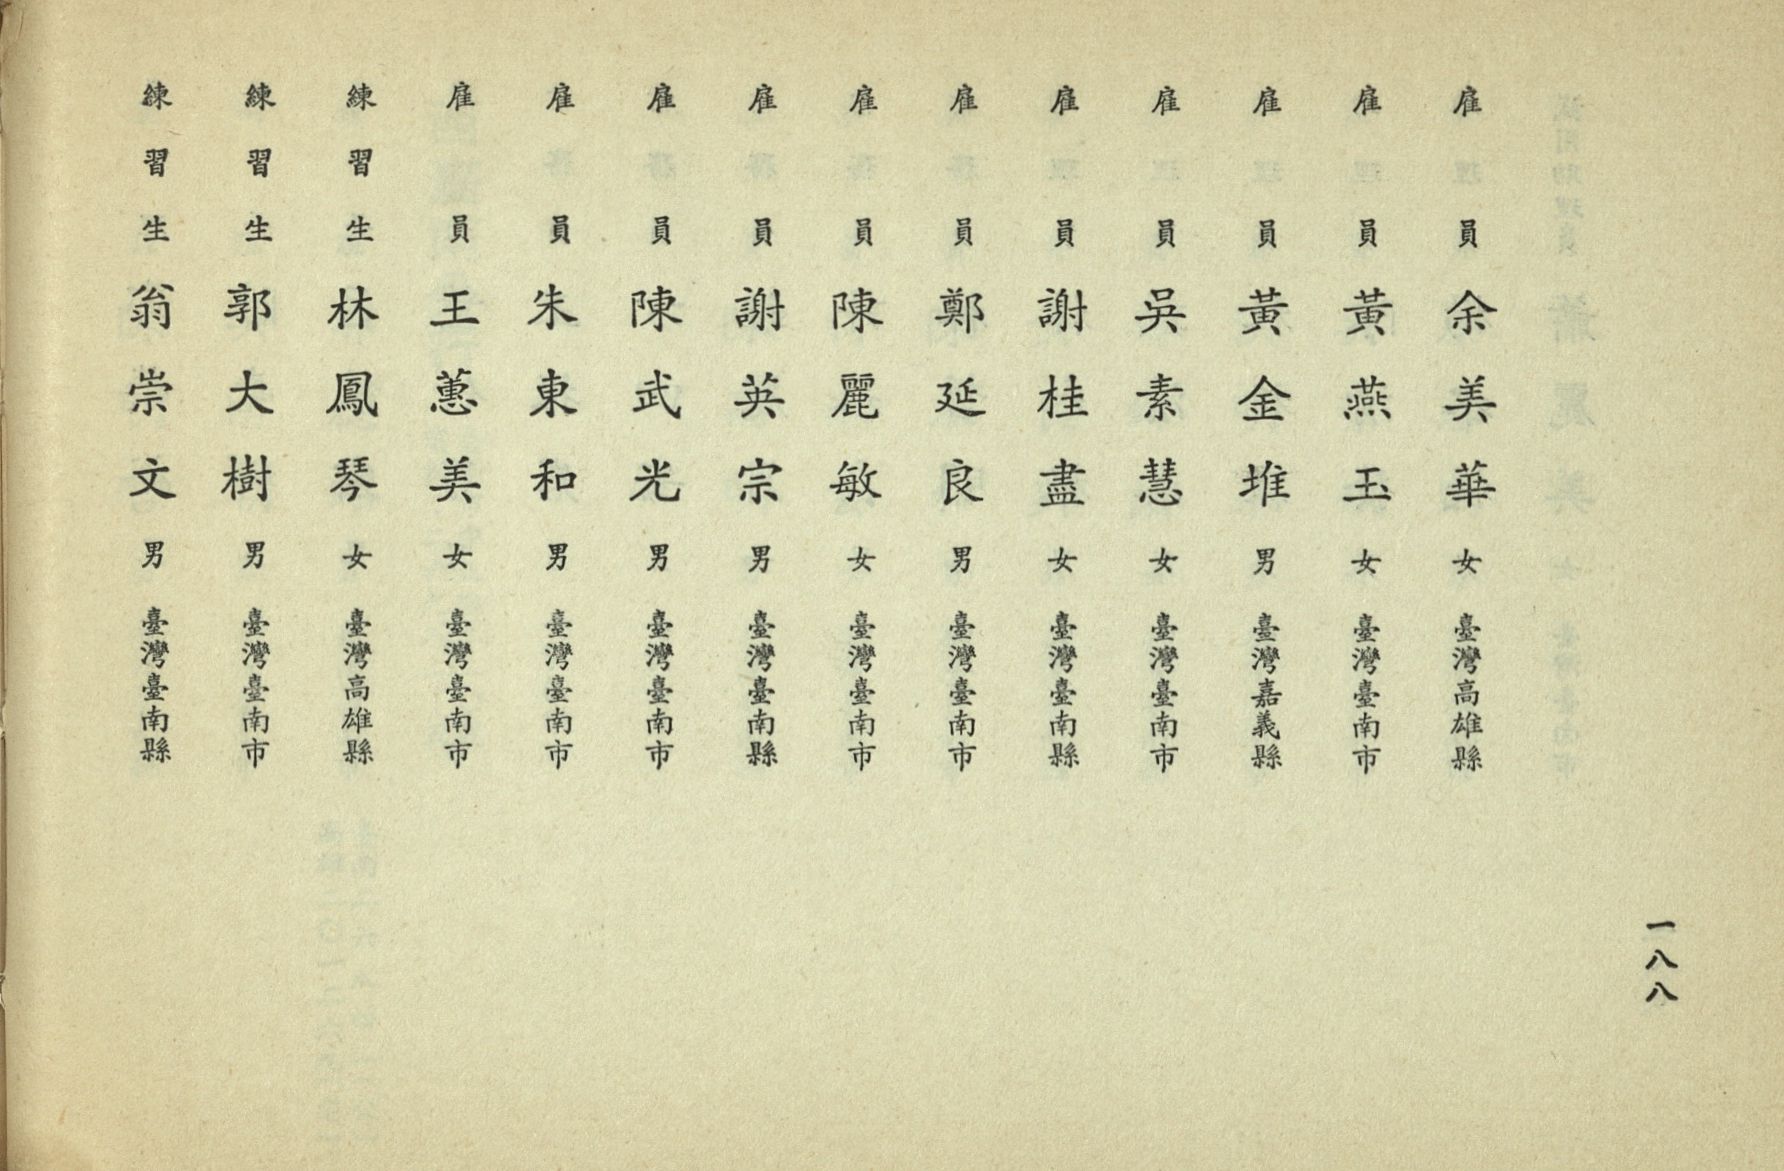 一八八
雇員 余美華 女 臺灣高雄縣
雇員 黃燕玉 女 臺灣臺南市
雇員 黃金堆 男 臺灣嘉義縣
雇員 吳素慧 女 臺灣臺南市
雇員 謝桂盡 女 臺灣臺南縣
雇員 鄭延良 男 臺灣臺南市
雇員 陳麗敏 女 臺灣臺南市
雇員 謝英宗 男 臺灣臺南縣
雇員 陳武光 男 臺灣臺南市
雇員 朱東和 男 臺灣臺南市
雇員 王蕙美 女 臺灣臺南市
練習生 林鳳琴 女 臺灣高雄縣
練習生 郭大樹 男 臺灣臺南市
練習生 翁崇文 男 臺灣臺南縣